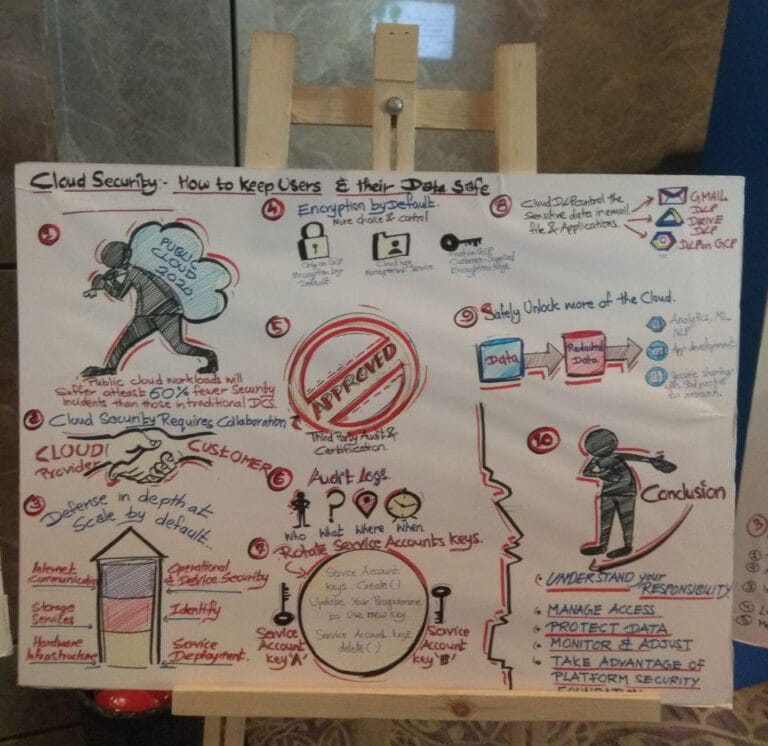 Cloud Security:- How to keep Users & their Data Safe
1
PUBLIC
CLOUD
2020
"Public cloud workloads will
Suffer atleast 60% fewer Security
Incidents than those in traditional DCS.
2 Cloud Security Requires Collaboration
CLOUD
Provider
CUSTOMER
3 Defense in depth at
Scale by default..
Internet
Communication
Storage
Services
Hardware
Infrastructure
Operational
& Device Security
Identify
Service
Deployment.
4 Encryption by Default.
More choice & control
Only on GCP
Encryption by
Default
Cloud key
Management Service
Customer-Supplied
Encryption Keys
5
APPROVED
Third Party Audit &
Certification.
6 Audit Logs
Who What Where When
7 Rotate Service Accounts keys.
Service Account
keys. Create()
Update Your Programme
to Use new key
Service Account keys
delete()
Service
Account
key 'A'
Service
Account
key 'B'
8 Cloud DLP control the
Sensitive data in email
file & Applications.
GMAIL
DLP
DRIVE
DLP
DLP on GCP
9 Safely Unlock more of the Cloud.
Data
Redacted
Data
Analytics, ML
App development
Secure sharing
10
Conclusion
UNDERSTAND your
RESPONSIBILITY
MANAGE ACCESS
PROTECT DATA
MONITOR & ADJUST
TAKE ADVANTAGE OF
PLATFORM SECURITY